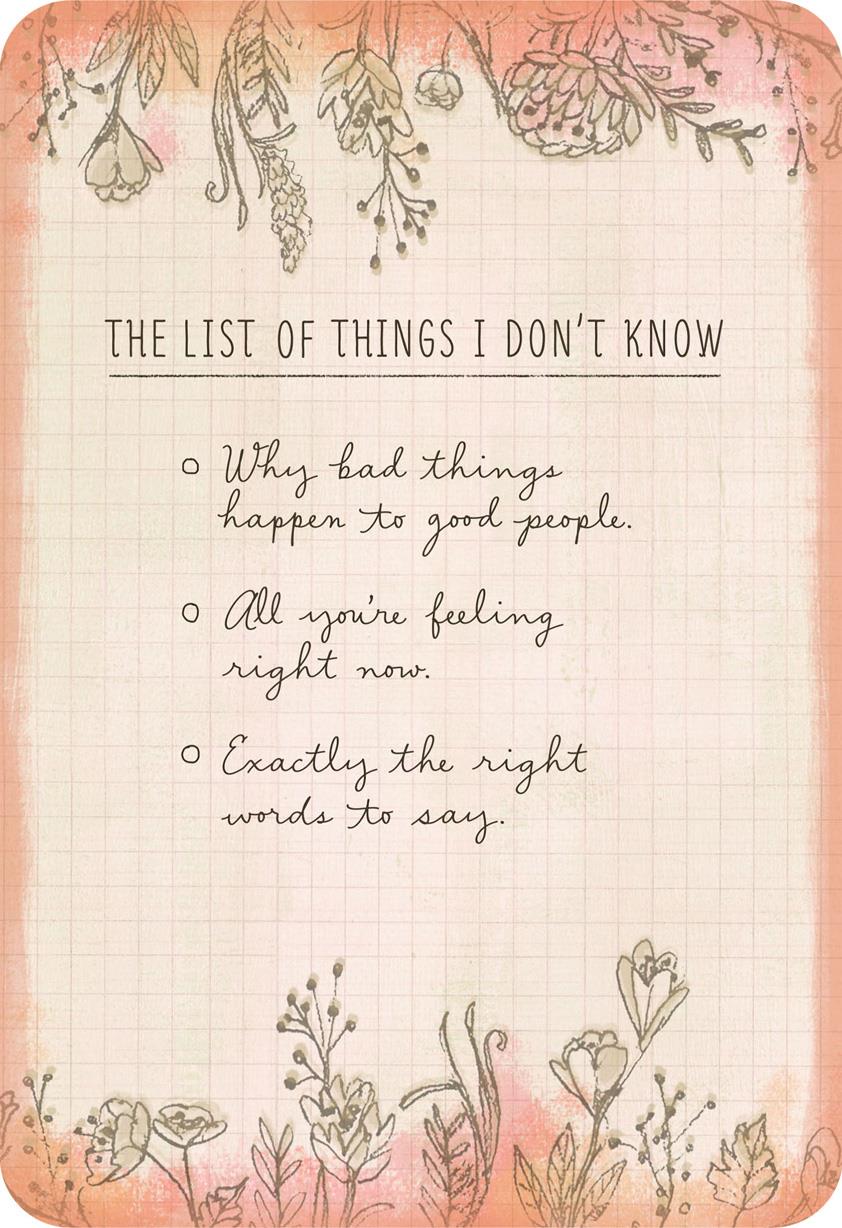 THE LIST OF THINGS I DON'T KNOW
Why bad things
happen to good people.
All you're feeling
right now.
Exactly the right
words to say.